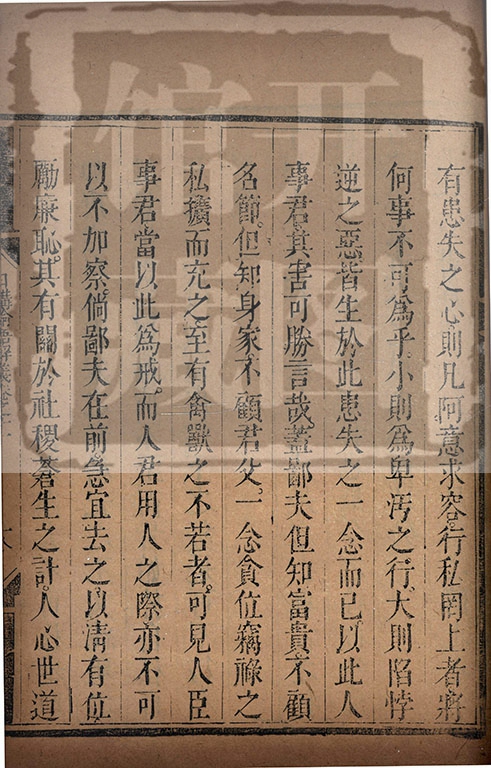 有患失之心則凡阿意求容行私罔上者將
何事不可為乎小則為卑汚之行大則陷悖
逆之惡皆生於此患失之一念而已以此人
事君其害可勝言哉蓋鄙夫但知富貴不顧
名節但知身家不顧君父一念貪位竊祿之
私擴而充之至有禽獸之不若者可見人臣
事君當以此為戒而人君用人之際亦不可
以不加察倘鄙夫在前急宜去之以清有位
勵廉恥其有關於社稷蒼生之計人心世道